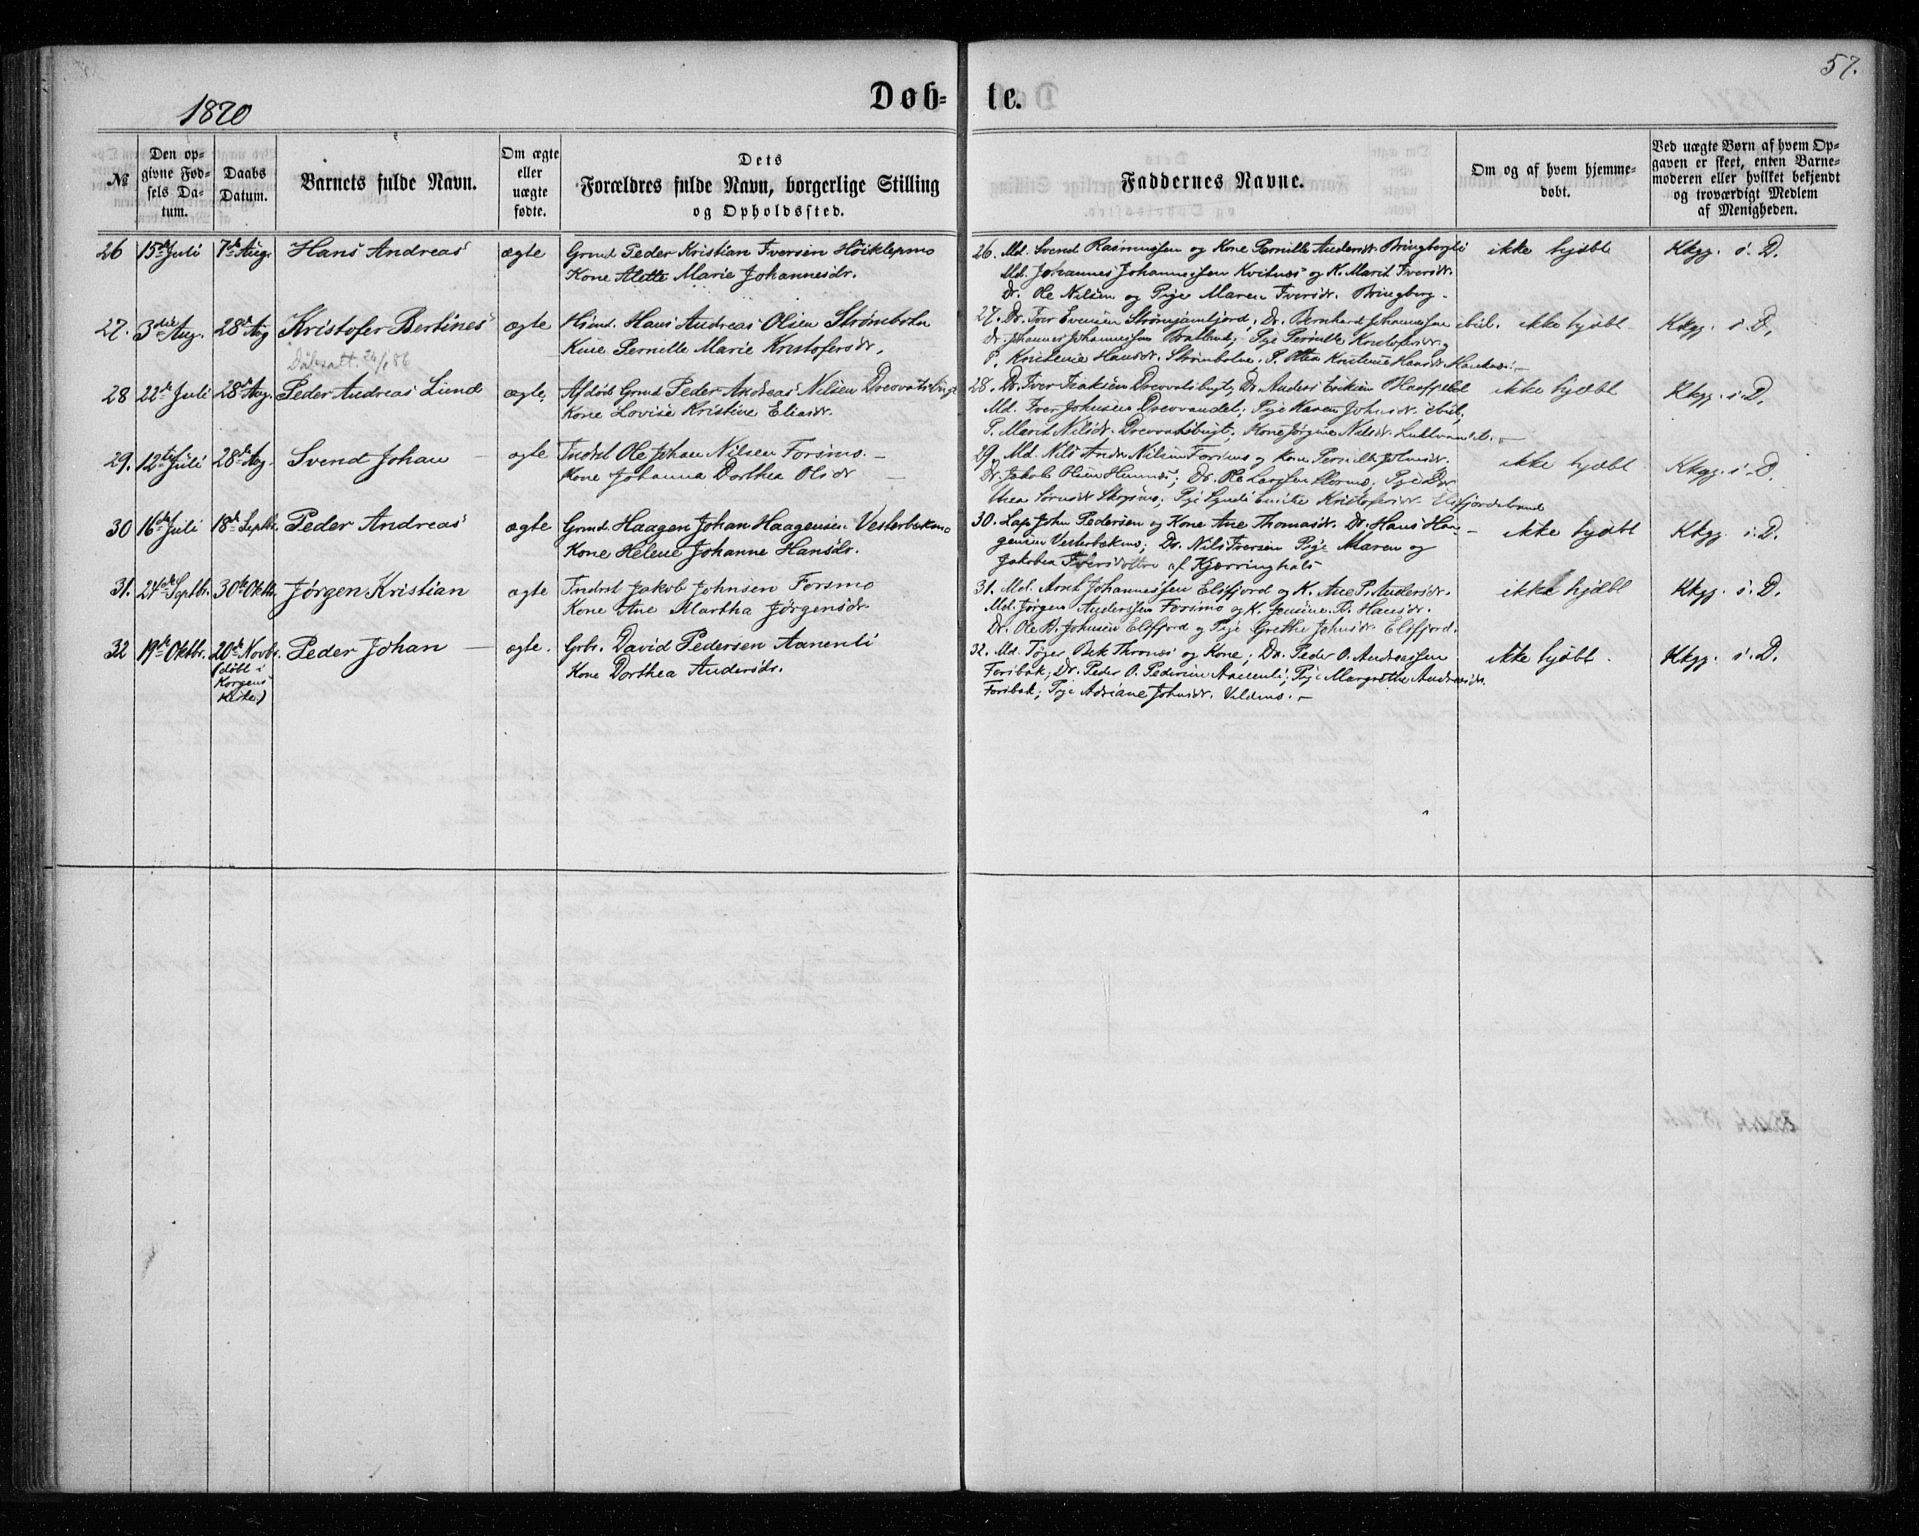 57.
1870
Døb- te.
№
Den opgivne Fødsels Datum.
Daabs Datum.
Barnets fulde Navn.
Om ægte eller uægte fødte.
Dets Forældres fulde Navn, borgerlige Stilling og Opholdssted.
Faddernes Navne.
Om og af hvem hjemmedøbt.
Ved uægte Børn af hvem Opgaven er skeet, enten Barnemoderen eller hvilket bekjendt og troværdigt Medlem af Menigheden.
26 15de Juli 7de Aug. Hans Andreas ægte
Grmd Peder Kristian Iversen Höiklepmo
Kone Alette Marie Johannesdr.
26. Md. Svend Rasmussen og Kone Pernille Andersdr. Bringbergli
Md. Johannes Johannessen Kvitnæs og K. Marit Iversdr.
Dr. Ole Nilsen og Pige Maren Iversdr. Bringberg.
ikke hjdbt Kkgg. i. D.
27. 3die Aug. 28de Aug Kristofer Bertines ægte
Dåbsatt. 24/1 86
Hsmd. Hans Andreas Olsen Strömboln
Kone Pernille Marie Kristofersdr.
27. Dr. Iver Evensen ; Dr. Bernhard Johannessen ibid.
Dr. Johannes Johannessen Bratland; Pige Pernille Kristofersdr. og
P. Kristence Hansdr. Strömboln. P. Kristine Hansdr.
ikke hjdbt. Kkgg. i. D.
28 22de Juli 28de Aug. Peder Andreas Lund ægte.
Afdöde Grmd Peder Andreas Nilsen Drevvatsbugt
Kone Lovise Kristine Eliasdr.
28. Dr. Iver Isaksen Drevvatsbugt, Dr. Anders Eriksen
Md. Iver Johnsen Drevvandet; Pige Karen Johnsdr. ibid.
P. Marit Nilsdr. Drevvatsbugt; Kone Jörgine Nilsdr. Luktvandet.
ikke hjdbt Kkgg. i. D.
29. 12te Juli 28de Aug. Svend Johan ægte
Indrst Ole Johan Nilsen Forsmo.
Kone Johanna Dorthea Olsdr
29. Md. Nils Andr. Nilsen Forsmo og Kone Pernille Johnsdr.
Dr. Jakob Olsen Hemnæs; Dr. Ole Larssen Stormo; Pige Dor-
thea Pige Kristofersdr. Elsfjordstrand
ikke hjdbt Kkgg. i. D.
30 16de Juli 18de Septbr. Peder Andreas ægte
Grmd. Haagen Johan Haagensen Vesterbækmo
Kone Helene Johanne Hansdr.
30. Lap John Pedersen og Kone Ane Thomasdr. Dr. Hans Haa-
gensen Vesterbækmo; Dr. Nils Iversen Pige Maren og
Jakobea Iversdöttre af Kjærringhals
ikke hjdbt Kkgg. i. D.
31. 24de Septbr. 30te Oktbr. Jörgen Kristian ægte
Indrst Jakob Johnsen Forsmo
Kone Ane Martha Jörgensdr.
31. Md. Arnt Johannessen Elsfjord og K. Ane P. Andersdr.
Md. Jörgen Anderssen Forsmo og K. Jensine P. Hansdr.
Dr. Ole B. Johnsen Elsfjord og Pige Grethe Johnsdr. Elsfjord.
ikke hjdbt Kkgg. i. D.
32 19de Oktbr. 20de Novbr. Peder Johan ægte.
(döbt i
Korgens
Kirke)
Grbr. David Pedersen Aanenli
Kone Dorthea Andersdr.
32. Md. Töger Bek Thornæs og Kone; Dr. Peder O. Andreassen
Forsbak; Dr. Peder O. Pedersen Aanenli; Pige Margrethe Andreasdr.
Forsbak; Pige Adriane Johnsdr. Valdmo.
ikke hjdbt. Kkgg. i. D.